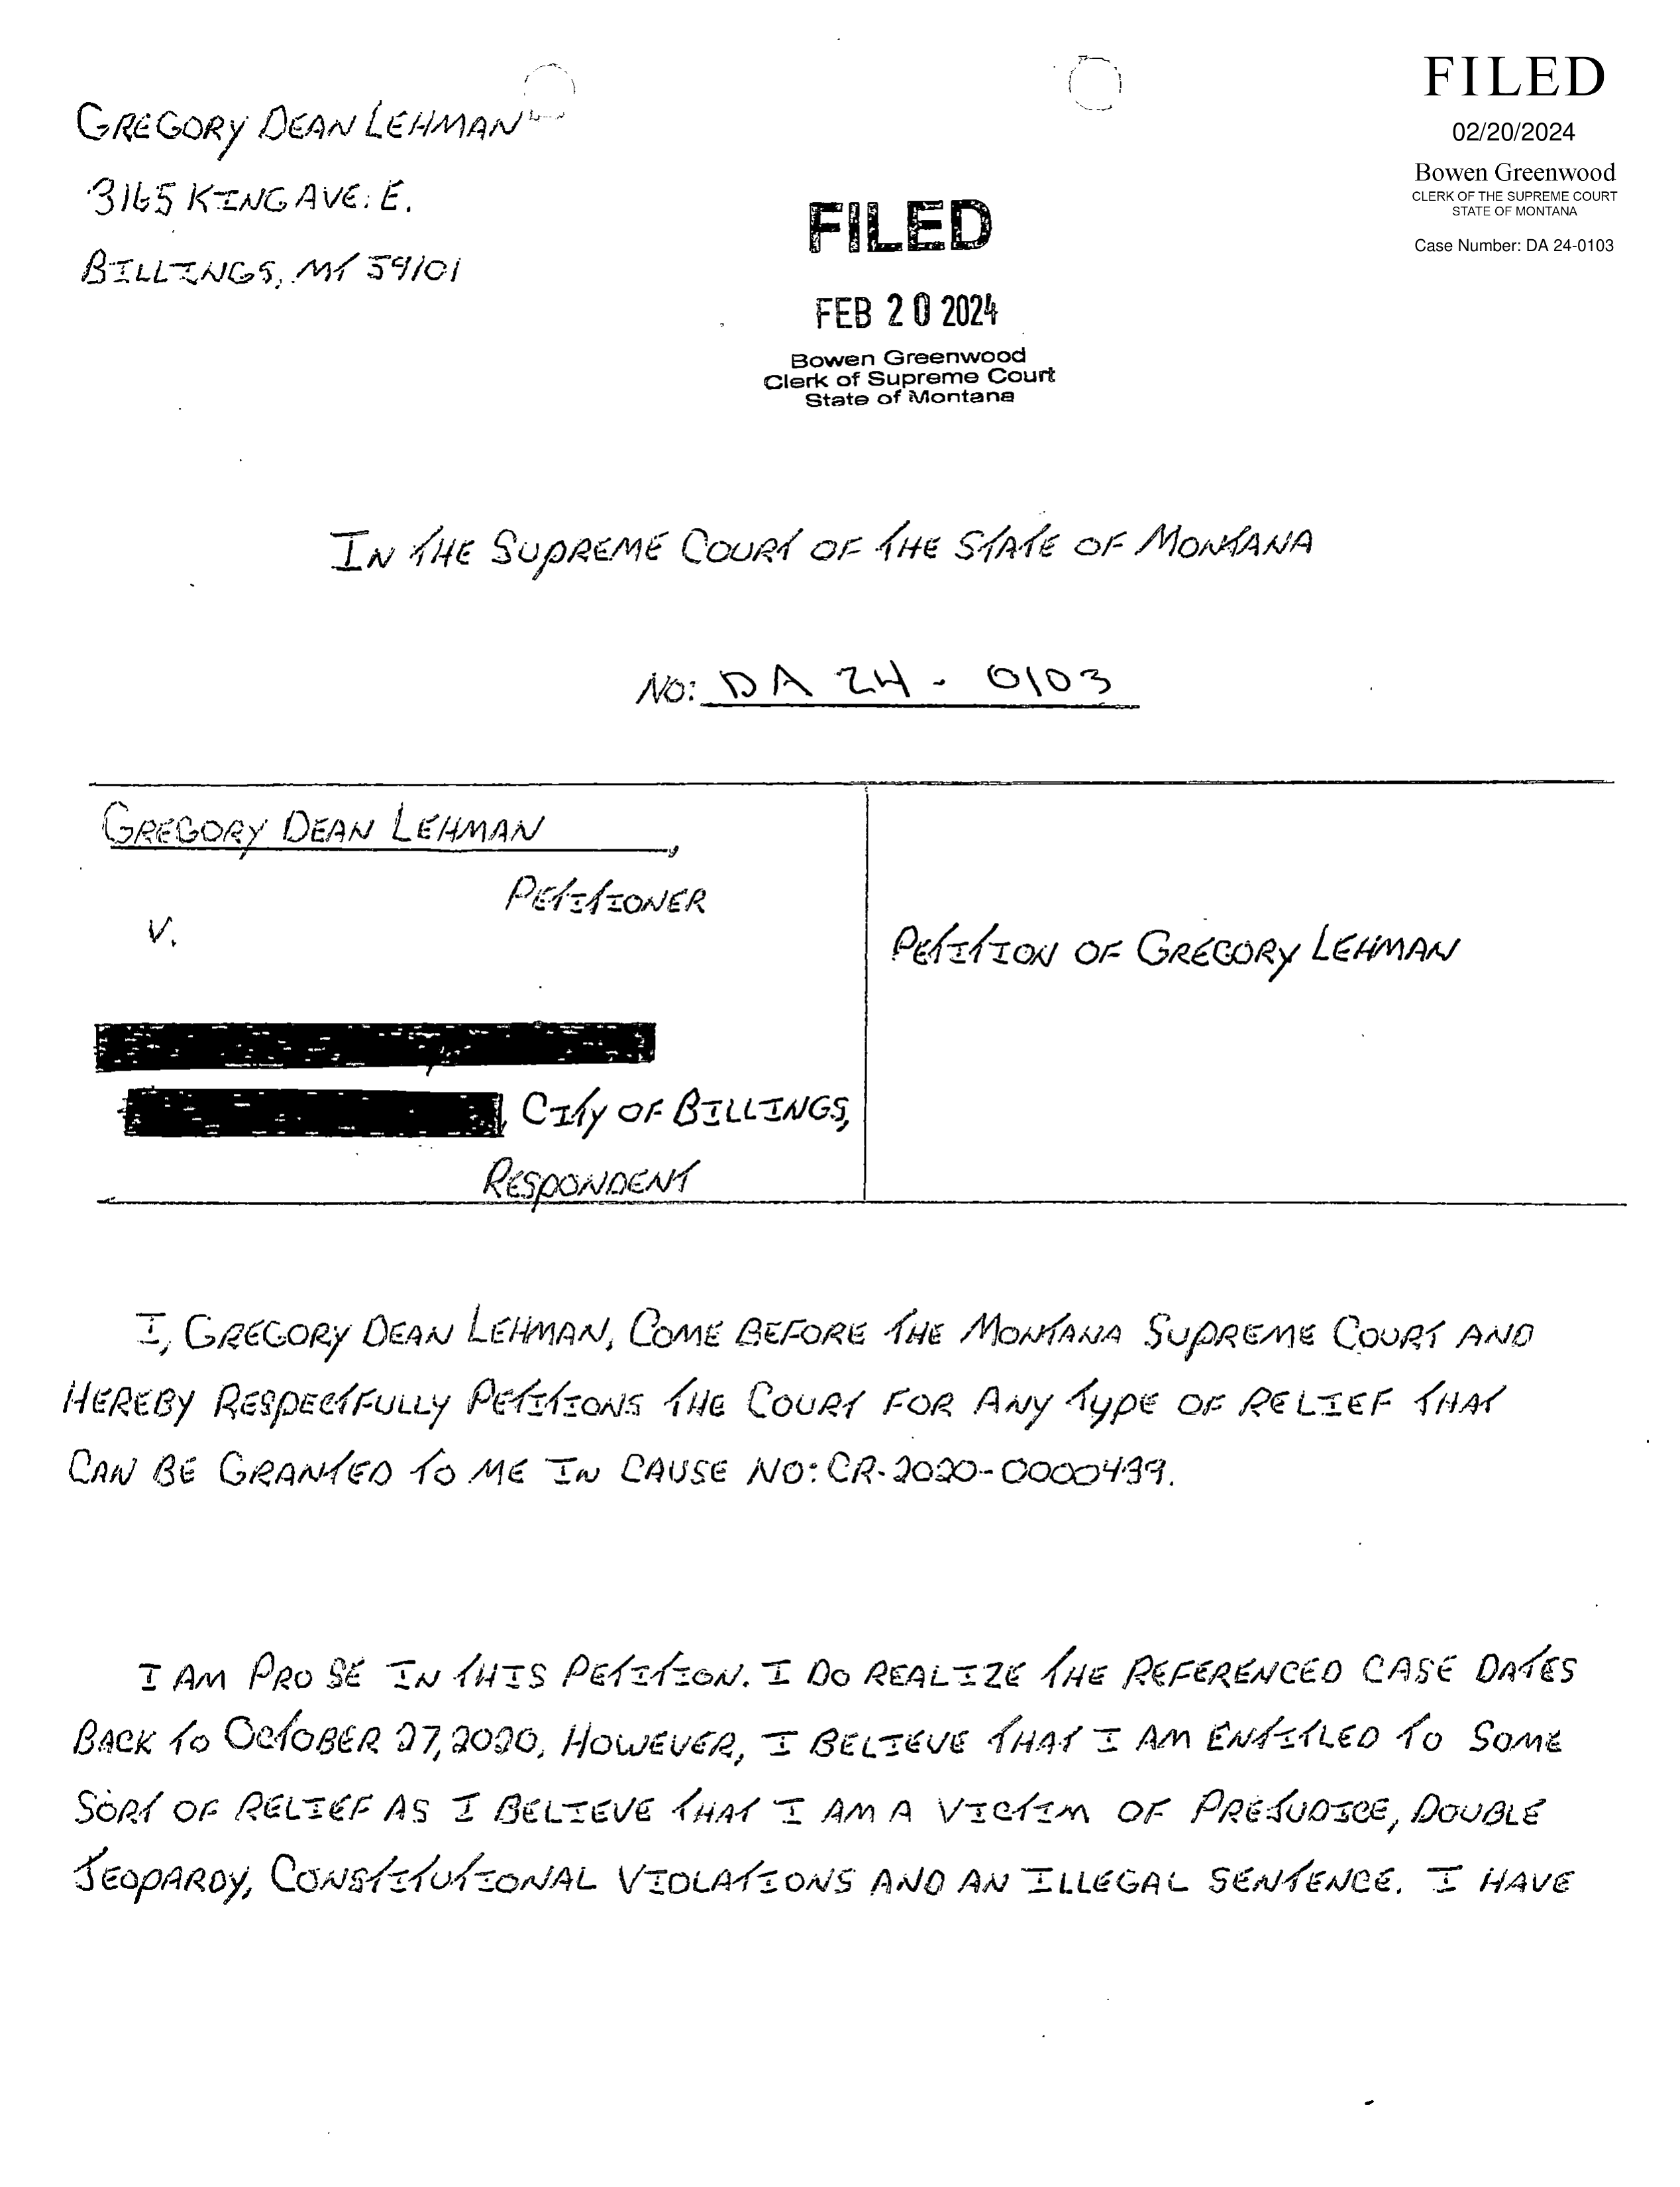 FILED
02/20/2024
Bowen Greenwood
CLERK OF THE SUPREME COURT
STATE OF MONTANA
Case Number: DA 24-0103
GREGORY DEAN LEHMAN
3165 KING AVE. E.
BILLINGS, MT 59101
FILED
FEB 20 2024
Bowen Greenwood
Clerk of Supreme Court
State of Montana
IN THE SUPREME COURT OF THE STATE OF MONTANA
NO: DA 24-0103
GREGORY DEAN LEHMAN,
PETITIONER
V.
PETITION OF GREGORY LEHMAN
, CITY OF BILLINGS,
RESPONDENT
I, GREGORY DEAN LEHMAN, COME BEFORE THE MONTANA SUPREME COURT AND
HEREBY RESPECTFULLY PETITIONS THE COURT FOR ANY TYPE OF RELIEF THAT
CAN BE GRANTED TO ME IN CAUSE NO: CR-2020-0000439.
I AM PRO SE IN THIS PETITION. I DO REALIZE THE REFERENCED CASE DATES
BACK TO OCTOBER 27, 2020, HOWEVER, I BELIEVE THAT I AM ENTITLED TO SOME
SORT OF RELIEF AS I BELIEVE THAT I AM A VICTIM OF PREJUDICE, DOUBLE
JEOPARDY, CONSTITUTIONAL VIOLATIONS AND AN ILLEGAL SENTENCE. I HAVE